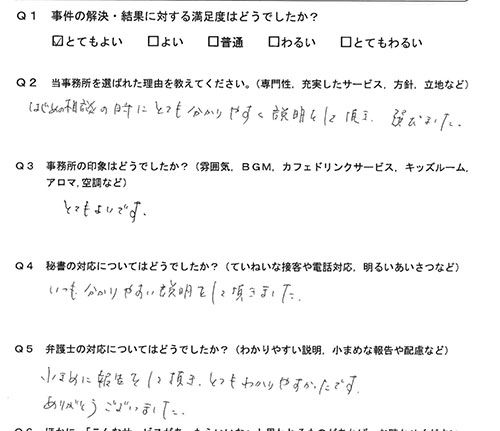 Q1 事件の解決・結果に対する満足度はどうでしたか？
☑とてもよい □よい □普通 □わるい □とてもわるい
Q2 当事務所を選ばれた理由を教えてください。（専門性，充実したサービス，方針，立地など）
はじめの相談の時にとても分かりやすく説明をして頂き、選びました。
Q3 事務所の印象はどうでしたか？（雰囲気，BGM，カフェドリンクサービス，キッズルーム，
アロマ，空調など）
とてもよいです。
Q4 秘書の対応についてはどうでしたか？（ていねいな接客や電話対応，明るいあいさつなど）
いつも分かりやすい説明をして頂きました。
Q5 弁護士の対応についてはどうでしたか？（わかりやすい説明，小まめな報告や配慮など）
小まめに報告をして頂き、とてもわかりやすかったです。
ありがとうございました。